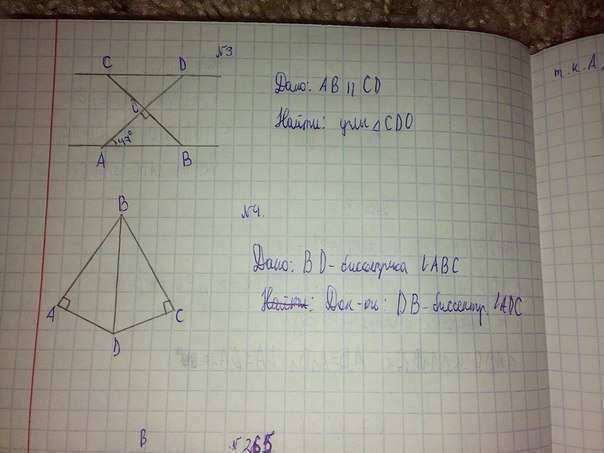 №3
C D
Дано: AB || CD
O
Найти: углы △CDO
47°
A B
№4.
B
Дано: BD - биссектриса ∠ABC
Найти: Док-ть: DB - биссектр. ∠ADC
A C
D
B №265
т.к. A